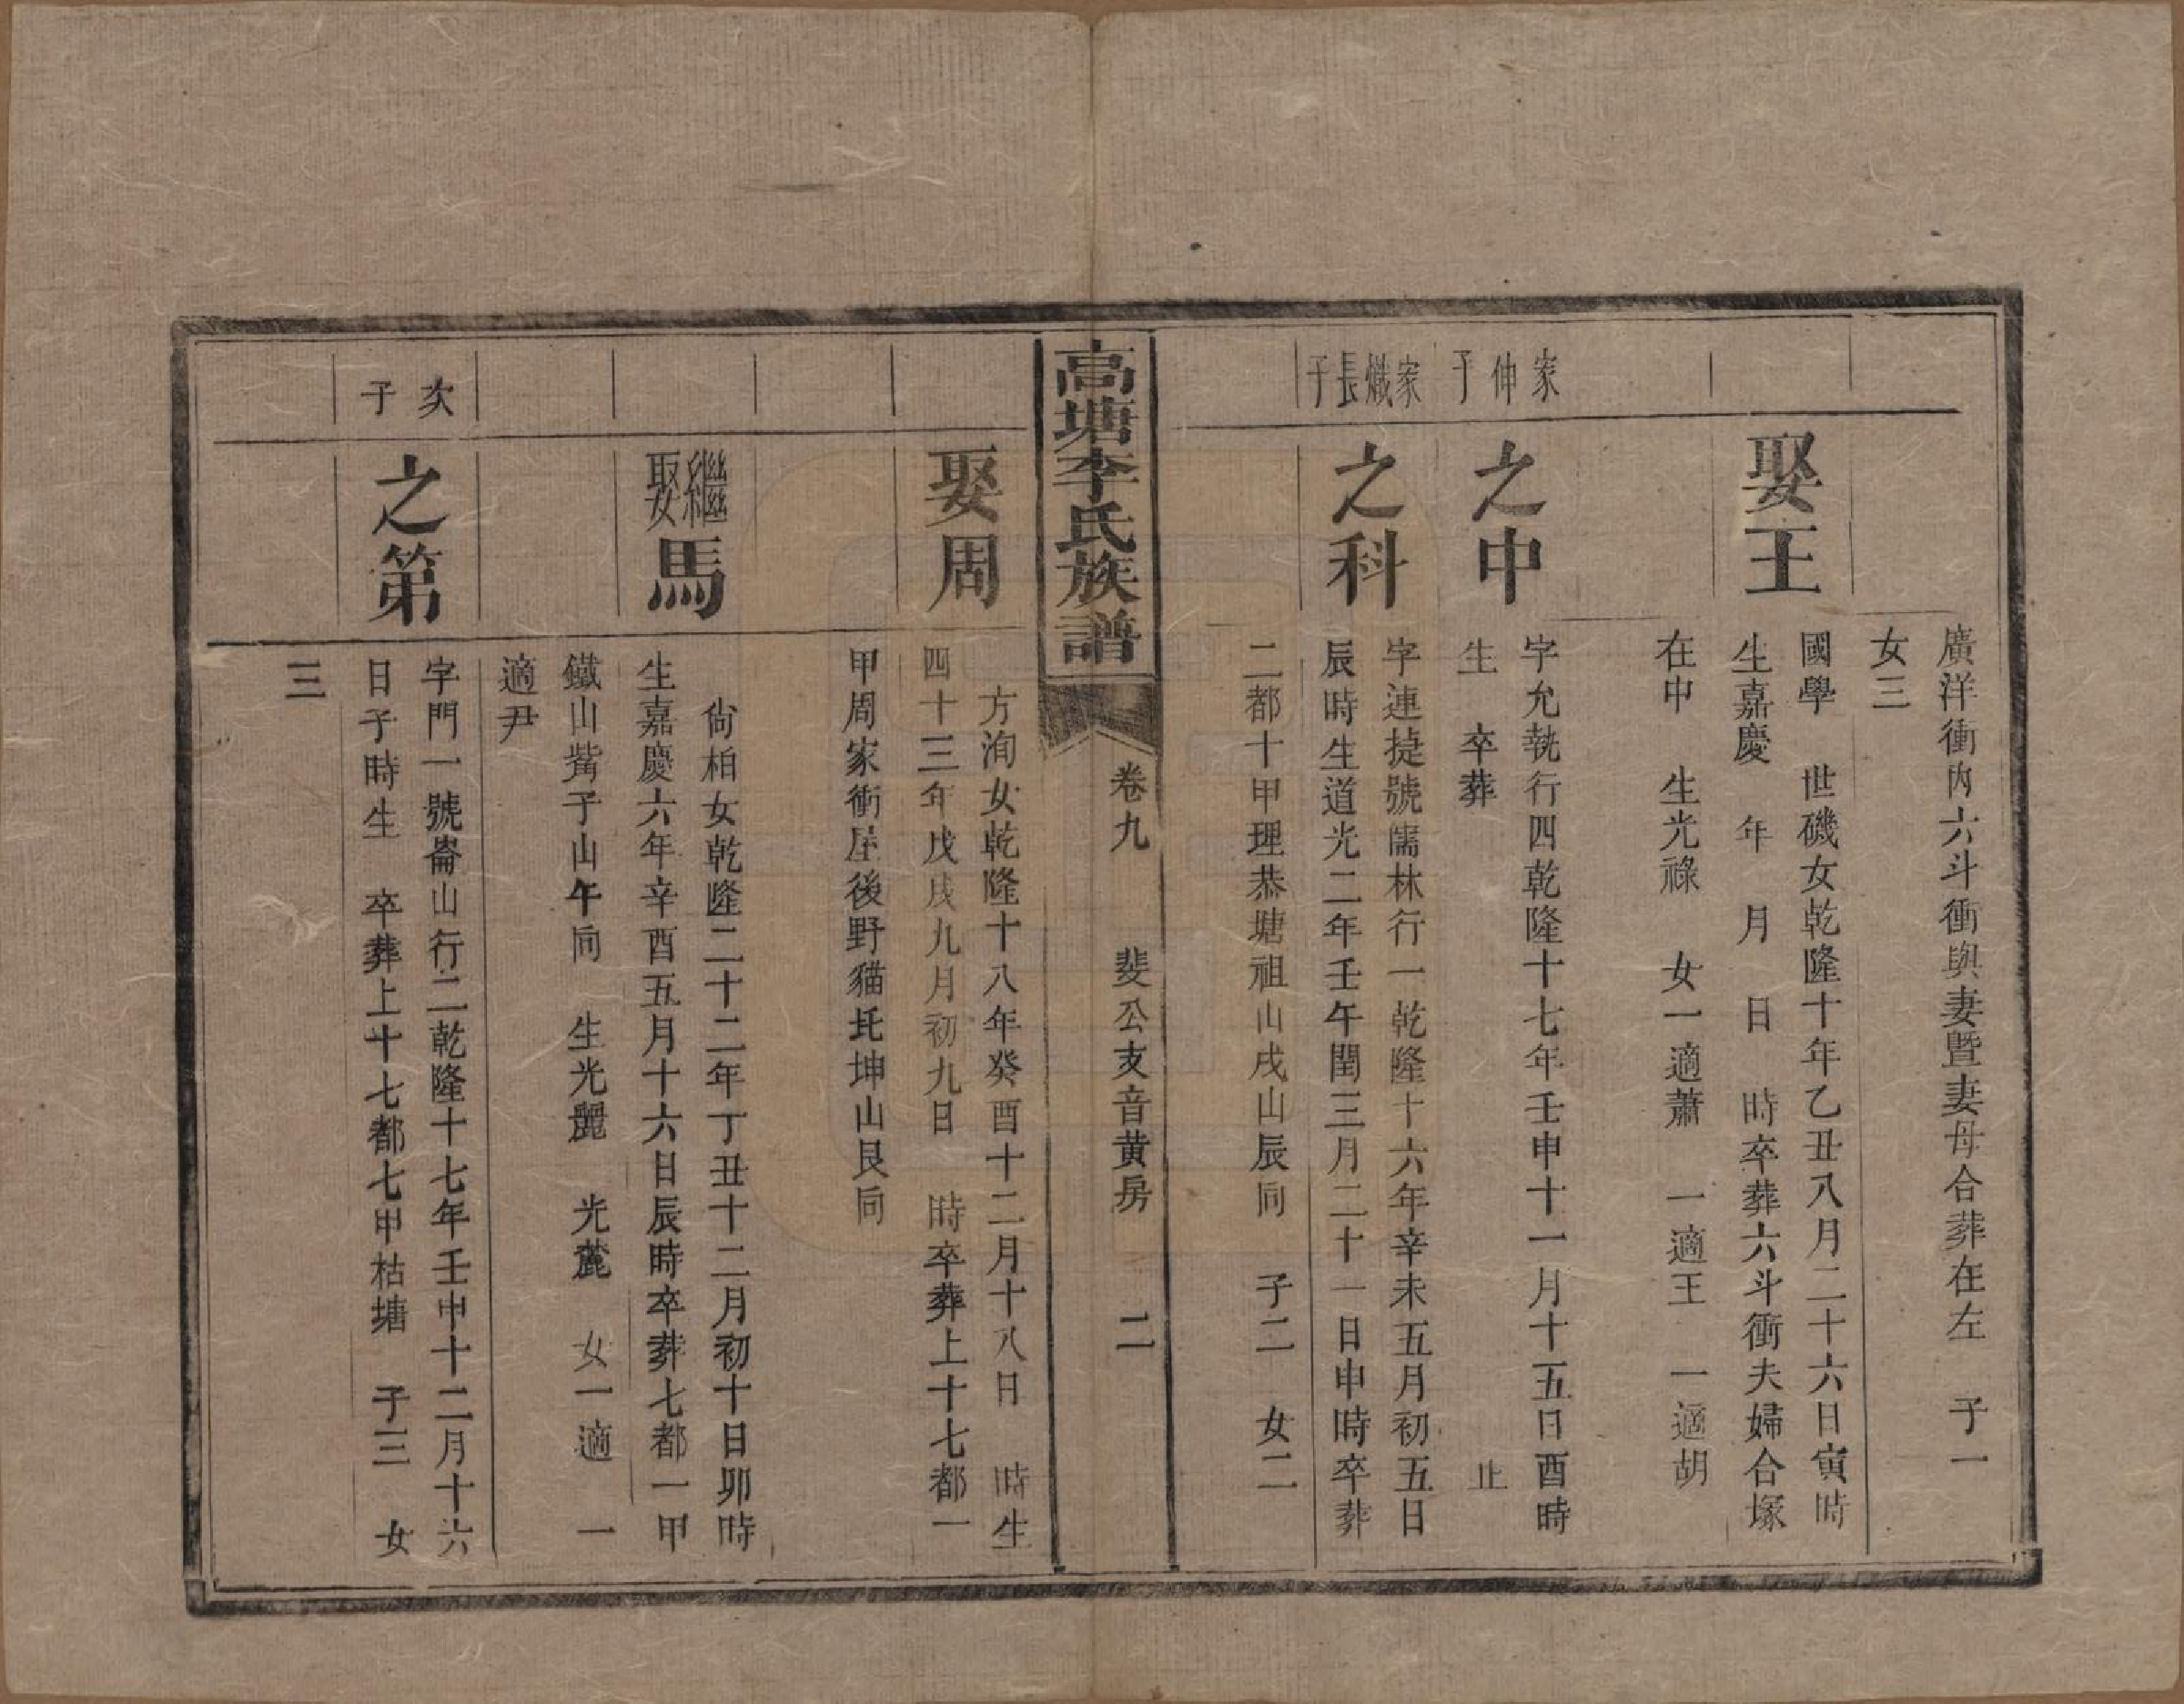 廣洋衝內六斗衝與妻暨妻母合葬在左　子一
女三
娶王
國學　世磯女乾隆十年乙丑八月二十六日寅時
生嘉慶　年　月　日　時卒葬六斗衝夫婦合塚
在中　生光祿　女一適蕭　一適王　一適胡
家伸子
之中
字允執行四乾隆十七年壬申十一月十五日酉時
生　卒葬　止
家熾長子
之科
字連捷號儒林行一乾隆十六年辛未五月初五日
辰時生道光二年壬午閏三月二十一日申時卒葬
二都十甲理恭塘祖山戌山辰向　子二　女二
高塘李氏族譜
卷九　斐公支音黃房　二
娶周
方洵女乾隆十八年癸酉十二月十八日　時生
四十三年戊戌九月初九日　時卒葬上十七都一
甲周家衝屋後野貓坉坤山艮向
繼娶馬
尙柏女乾隆二十二年丁丑十二月初十日卯時
生嘉慶六年辛酉五月十六日辰時卒葬七都一甲
鐵山觜子山午向　生光麗　光麓　女一適　一
適尹
次子
之第
字門一號崙山行二乾隆十七年壬申十二月十六
日子時生　卒葬上十七都七甲枯塘　子三　女
三